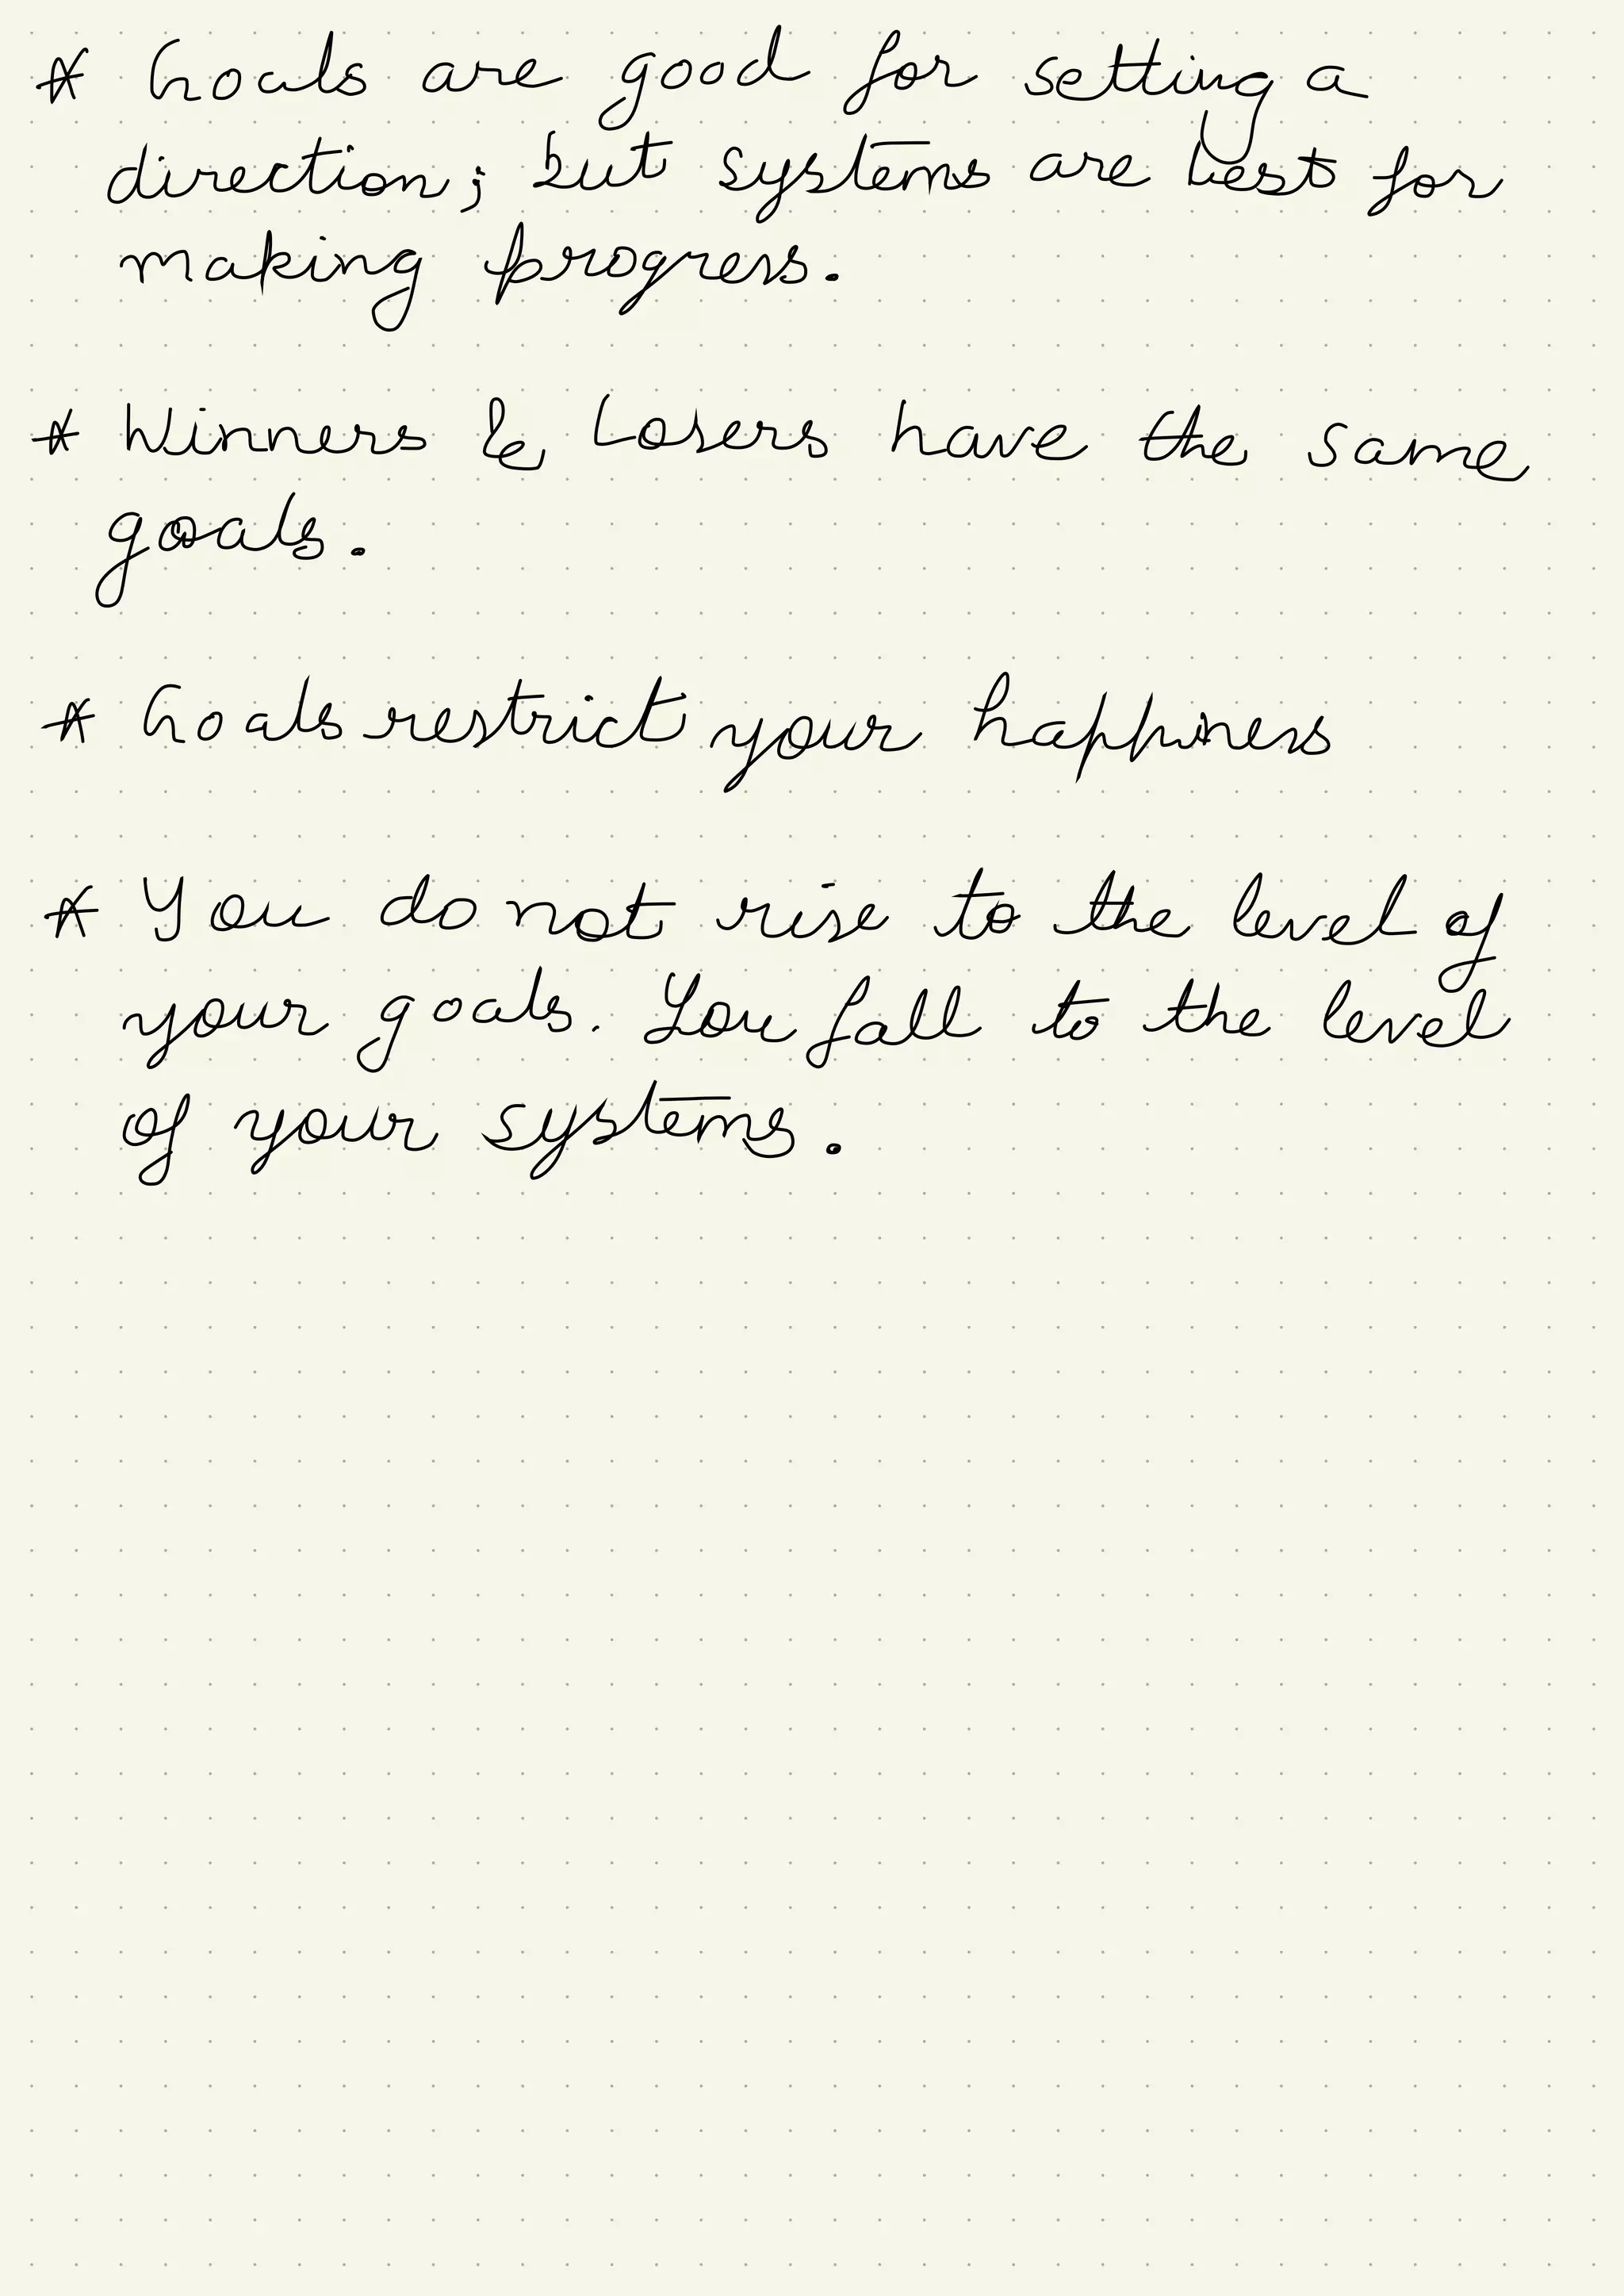 * Goals are good for setting a
direction; but systems are best for
making progress.
* Winners & Losers have the same
goals.
* Goals restrict your happiness
* You do not rise to the level of
your goals. You fall to the level
of your systems.